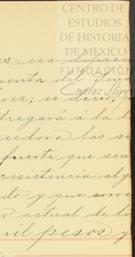 CENTRO DE
ESTUDIOS
DE HISTORIA
DE MEXICO
FUNDACIÓN
Carlos Slim
es esa
uenta del
rez; es decir,
tregara a la
eedora las
fuerte que sea
resistencia alg
do y que
or actual de lo
mil pesos y